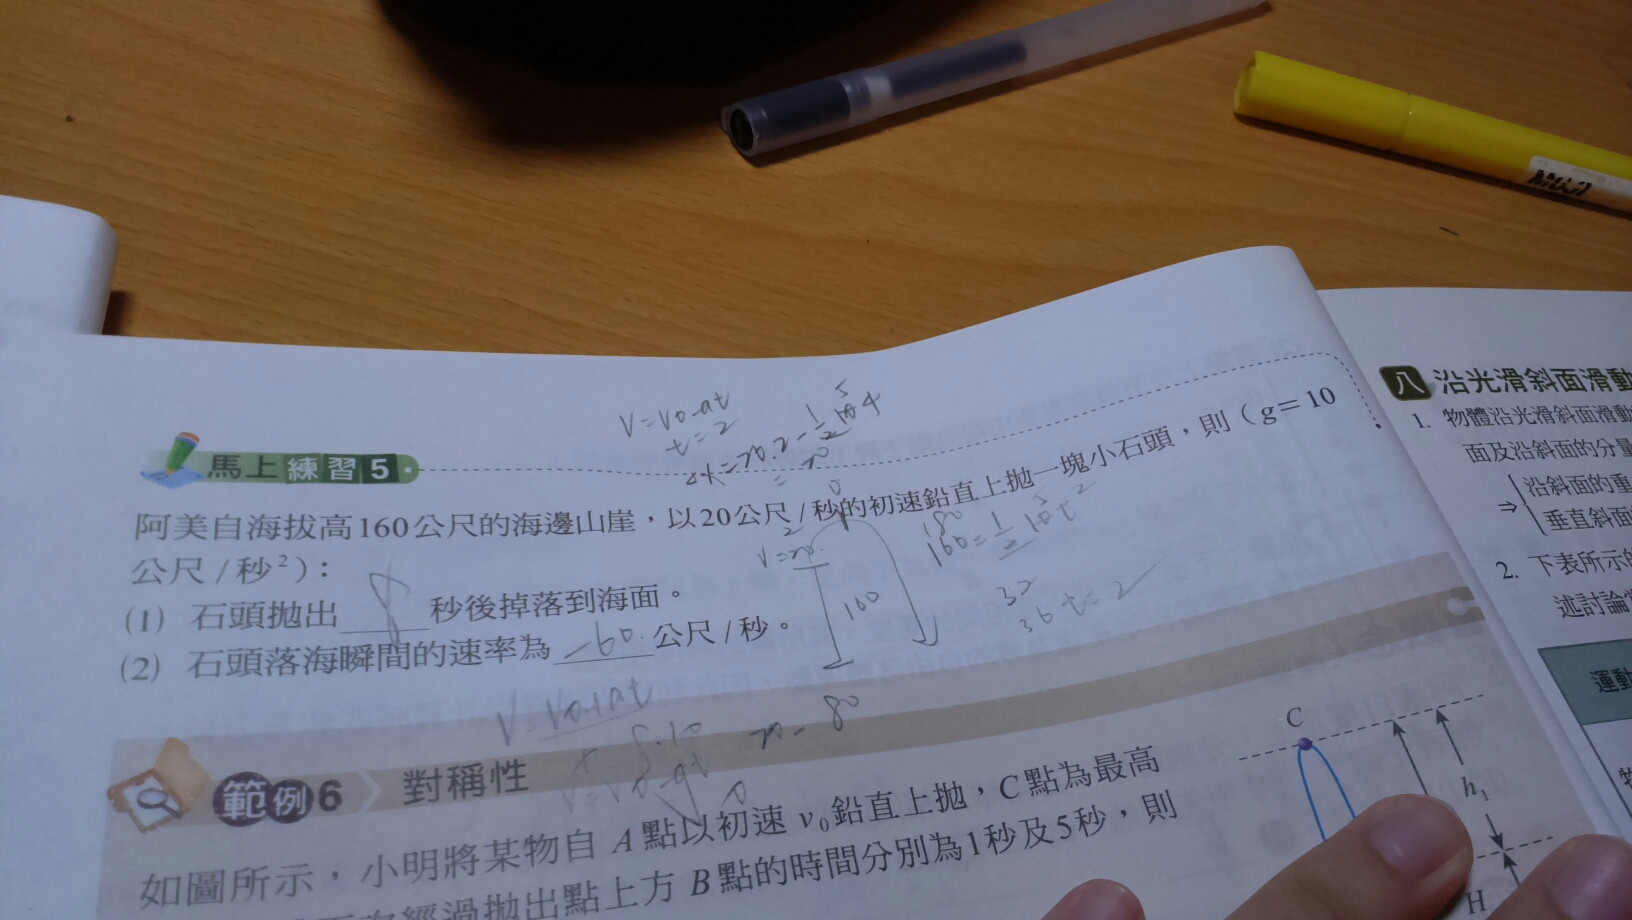 MUJI
V=V0-at
t=2
馬上練習5
阿美自海拔高160公尺的海邊山崖，以20公尺/秒的初速鉛直上拋一塊小石頭，則（g＝10
公尺/秒²）：
(1) 石頭拋出 8 秒後掉落到海面。
(2) 石頭落海瞬間的速率為 -60. 公尺/秒。
160
V=V0+at
20-80
範例6 對稱性
如圖所示，小明將某物自 A 點以初速 v₀ 鉛直上拋，C 點為最高
經過拋出點上方 B 點的時間分別為1秒及5秒，則
C
h₁
H
八 沿光滑斜面滑動
1. 物體沿光滑斜面滑動
面及沿斜面的分量
⇒ 沿斜面的重
垂直斜面
2. 下表所示的
述討論
運動